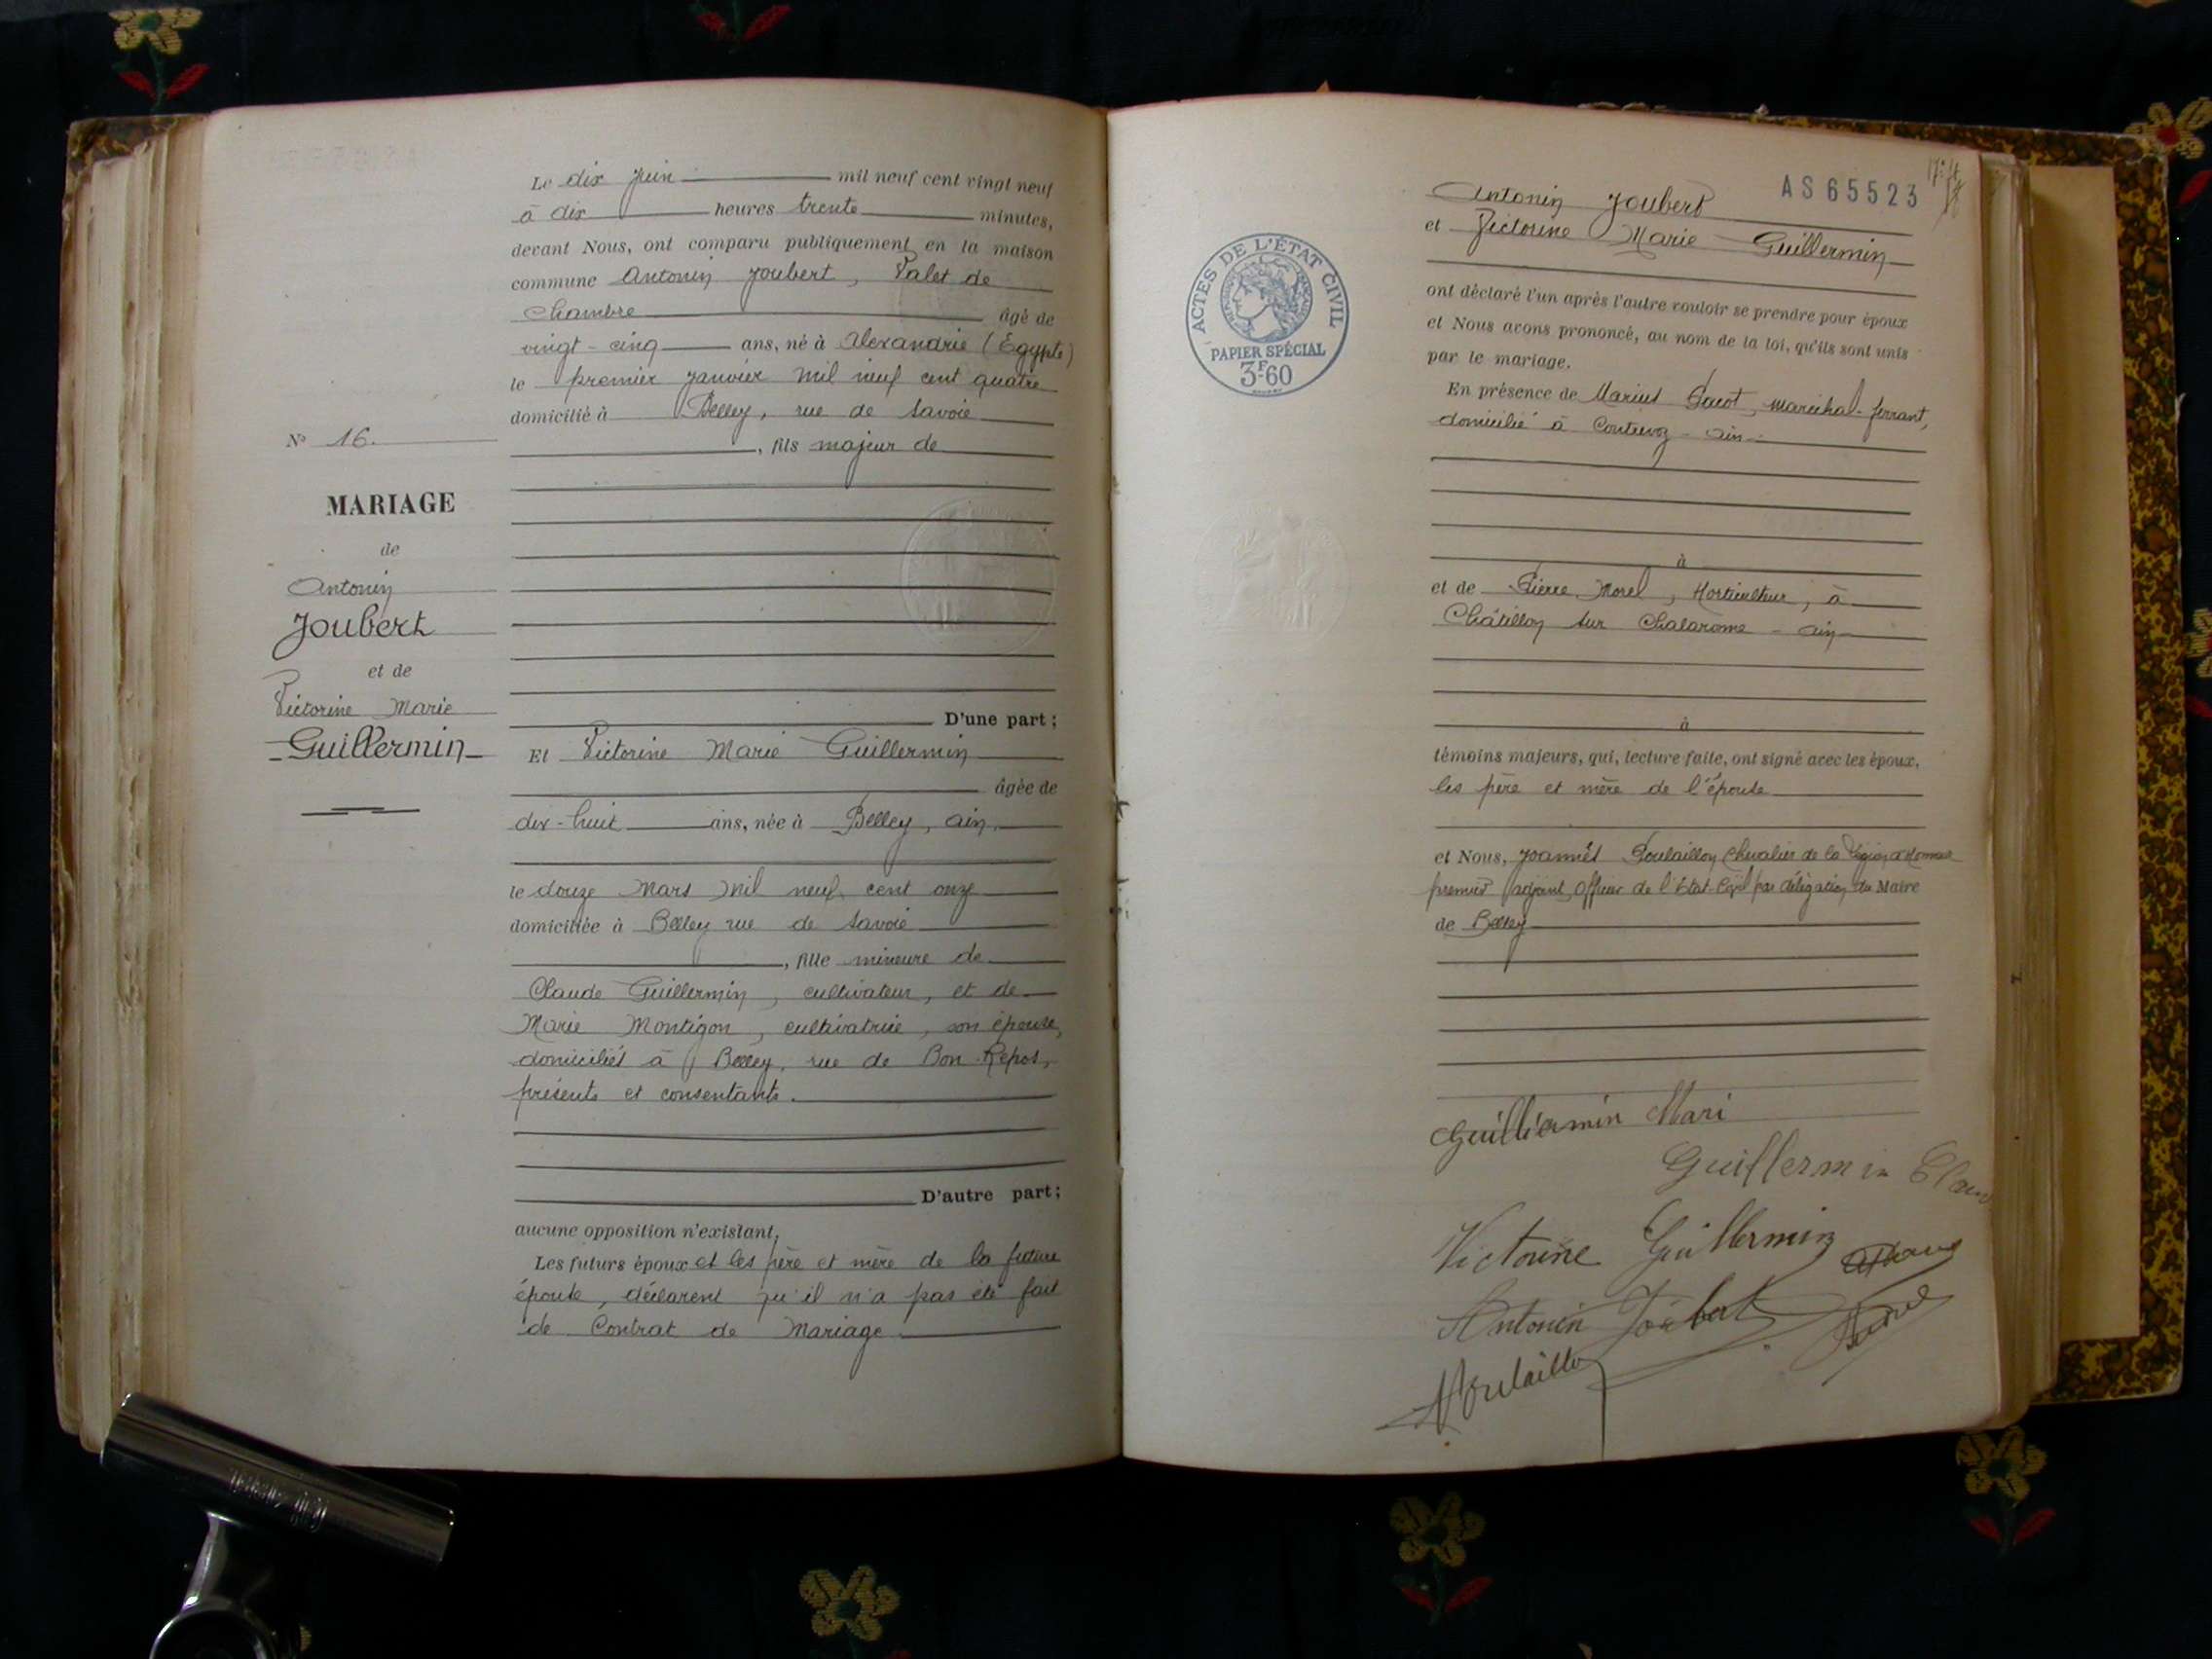 Le dix juin mil neuf cent vingt neuf
à dix heures trente minutes,
devant Nous, ont comparu publiquement en la maison
commune Antonin Joubert, Valet de
Chambre âgé de
vingt-cinq ans, né à Alexandrie (Égypte)
le premier janvier mil neuf cent quatre
domicilié à Belley, rue de Savoie
, fils majeur de
N° 16.
MARIAGE
de
Antonin
Joubert
et de
Victorine Marie
Guillermin
D'une part;
Et Victorine Marie Guillermin
âgée de
dix-huit ans, née à Belley, ain,
le douze Mars mil neuf cent onze
domiciliée à Belley rue de Savoie
, fille mineure de
Claude Guillermin, cultivateur, et de
Marie Montigon, cultivatrice, son épouse,
domiciliés à Belley, rue de Bon-Repos,
présents et consentants.
D'autre part;
aucune opposition n'existant,
Les futurs époux et les père et mère de la future
épouse, déclarent qu'il n'a pas été fait
de Contrat de Mariage
AS65523
Antonin Joubert
et Victorine Marie Guillermin
ACTES DE L'ÉTAT CIVIL
PAPIER SPÉCIAL
3F60
ont déclaré l'un après l'autre vouloir se prendre pour époux
et Nous avons prononcé, au nom de la loi, qu'ils sont unis
par le mariage.
En présence de Marius maréchal-ferrant,
domicilié à Contrevoz - ain -
à
et de Pierre Morel, Horticulteur, à
Châtillon sur Chalaronne - ain
à
témoins majeurs, qui, lecture faite, ont signé avec les époux,
les père et mère de l'épouse
et Nous, Joannès Poulaillon Chevalier de la Légion d'Honneur
premier adjoint, Officier de l'Etat-Civil par délégation du Maire
de Belley
Guilliermin Mari
Guillermin Claud
Victorine Guillermin
Antonin Joubert
Poulaillon